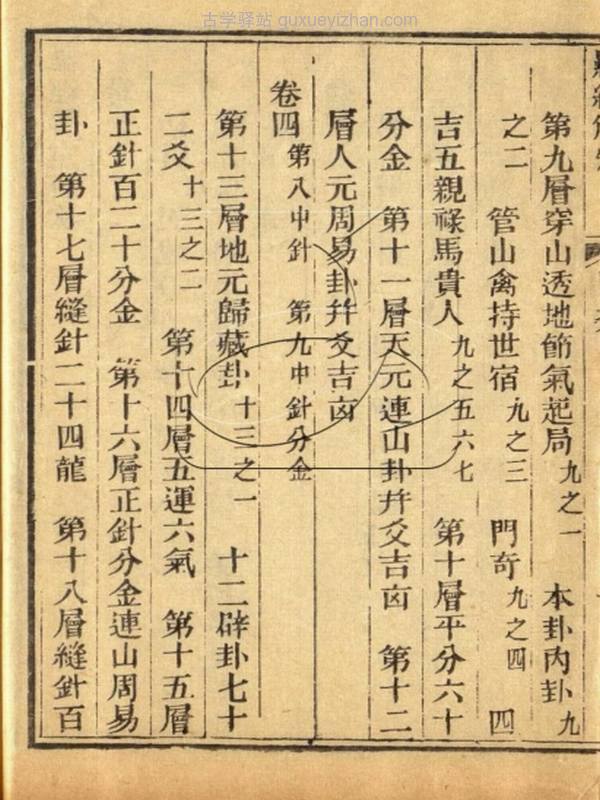 古学驿站 guxueyizhan.com
第九層穿山透地節氣起局九之一　本卦內卦九
之二　管山禽持世宿九之三　門奇九之四　四
吉五親祿馬貴人九之五六七　第十層平分六十
分金　第十一層天元連山卦幷爻吉凶　第十二
層人元周易卦幷爻吉凶
卷四第八中針　第九中針分金
第十三層地元歸藏卦十三之一　十二辟卦七十
二爻十三之二　第十四層五運六氣　第十五層
正針百二十分金　第十六層正針分金連山周易
卦　第十七層縫針二十四龍　第十八層縫針百